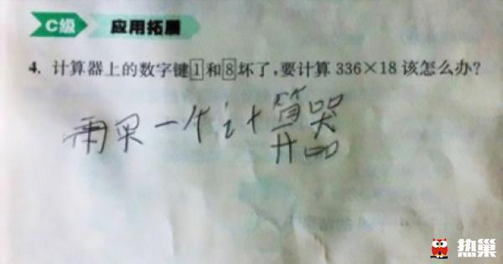 C级 应用拓展
4. 计算器上的数字键1和8坏了,要计算336×18该怎么办?
再买一个计算器
热巢